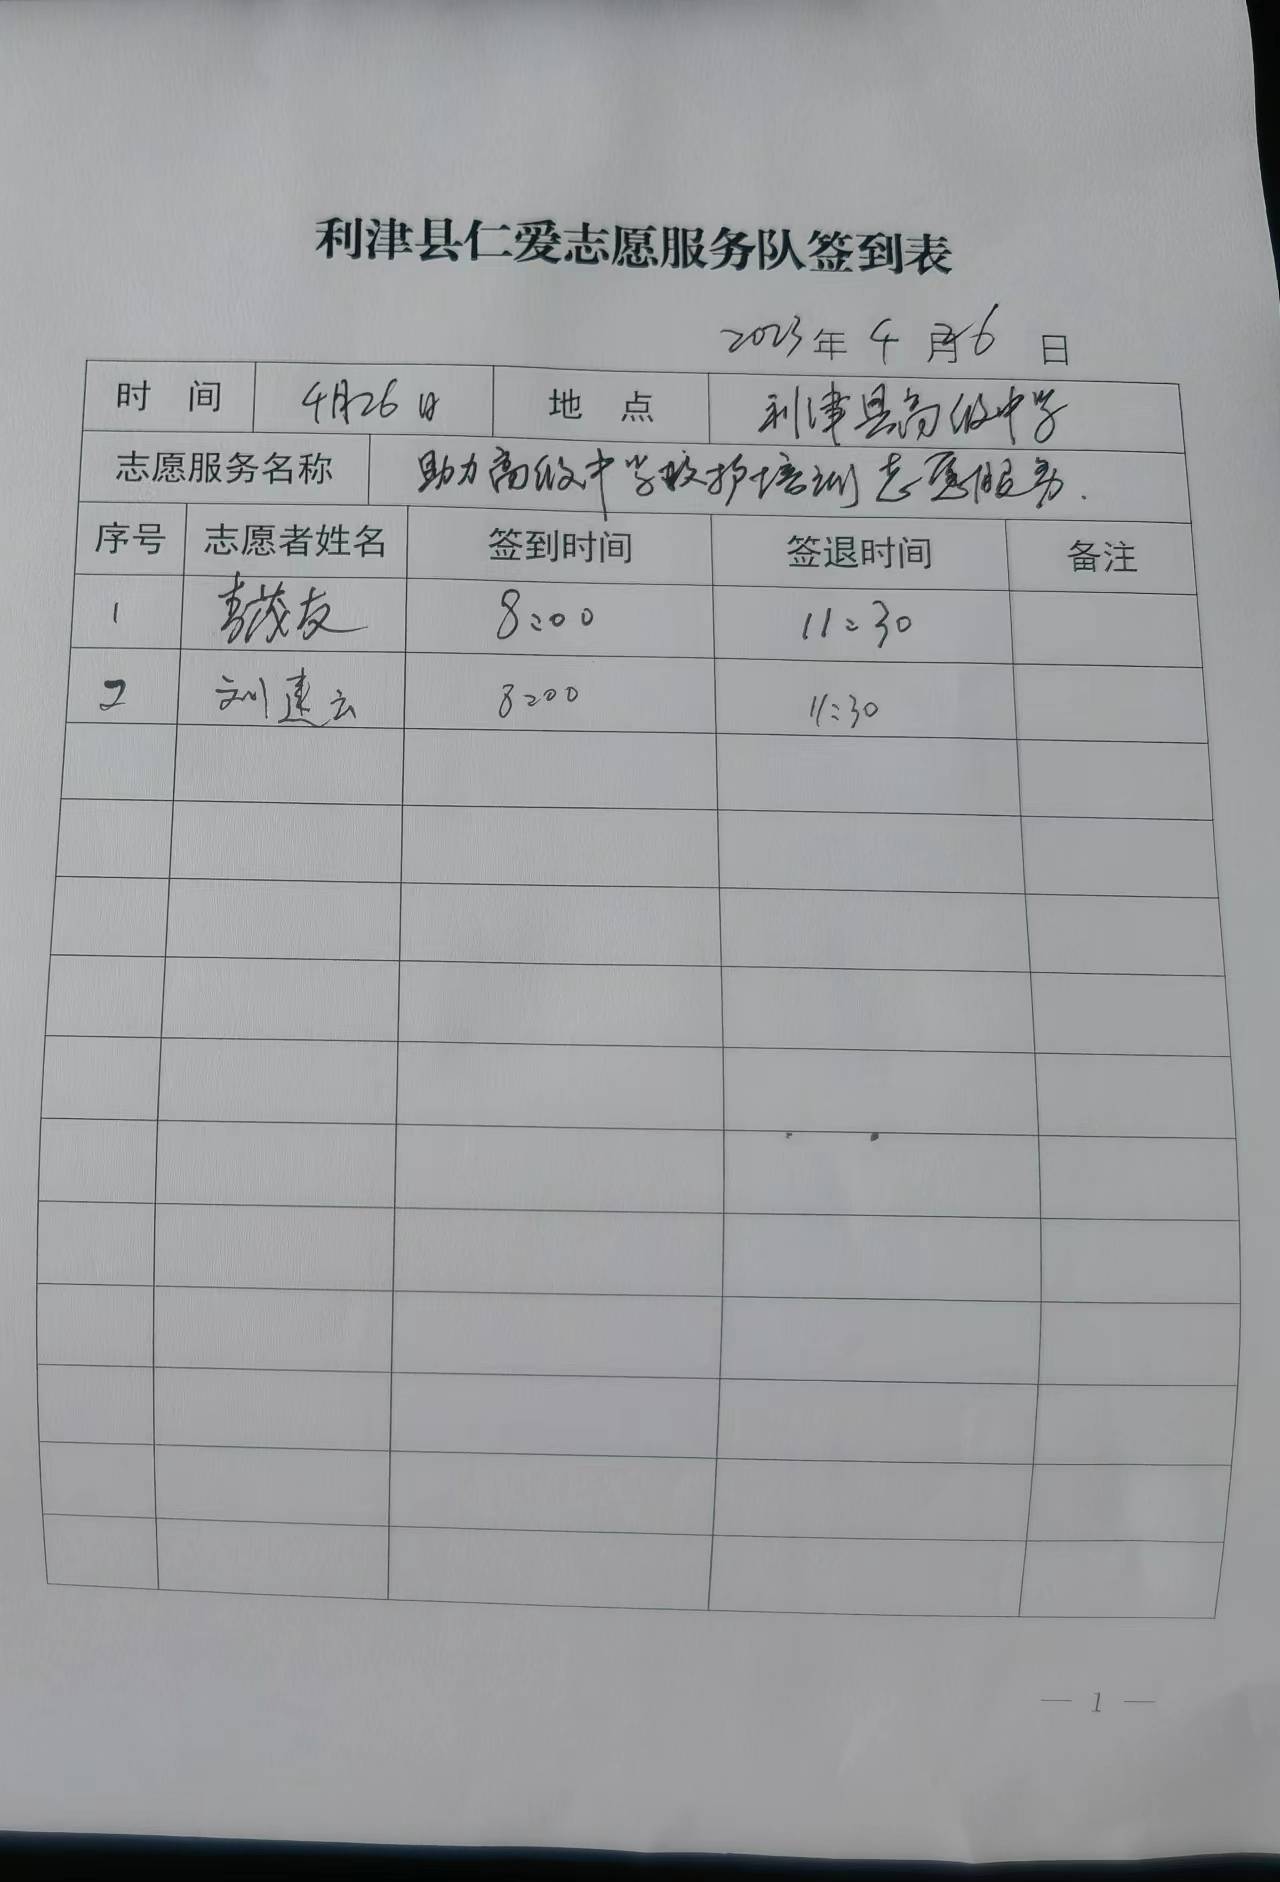 利津县仁爱志愿服务队签到表
2023年 4 月26 日
时 间 4月26日 地 点 利津县高级中学
志愿服务名称 助力高级中学救护培训志愿服务.
序号 志愿者姓名 签到时间 签退时间 备注
1 茂友 8:00 11:30
2 刘建云 8:00 11:30
— 1 —